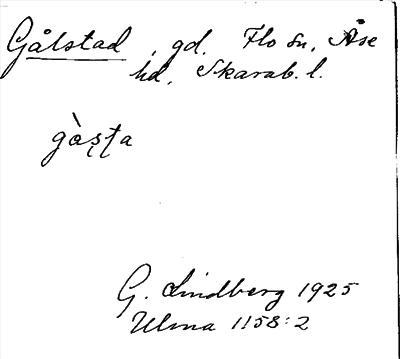 Gålstad, gd. Flo sn, Åse
hd, Skarab. l.
gàṣṭa
G. Lindberg 1925
Ulma 1158:2